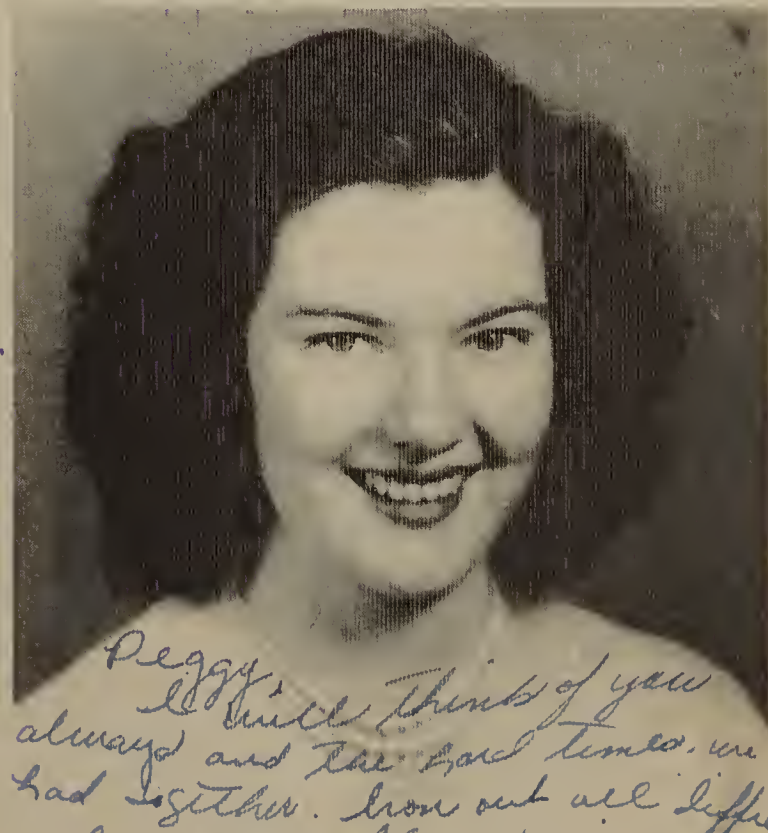 Peggy,
I will think of you
always and the good times. we
had together. Iron out all diffi